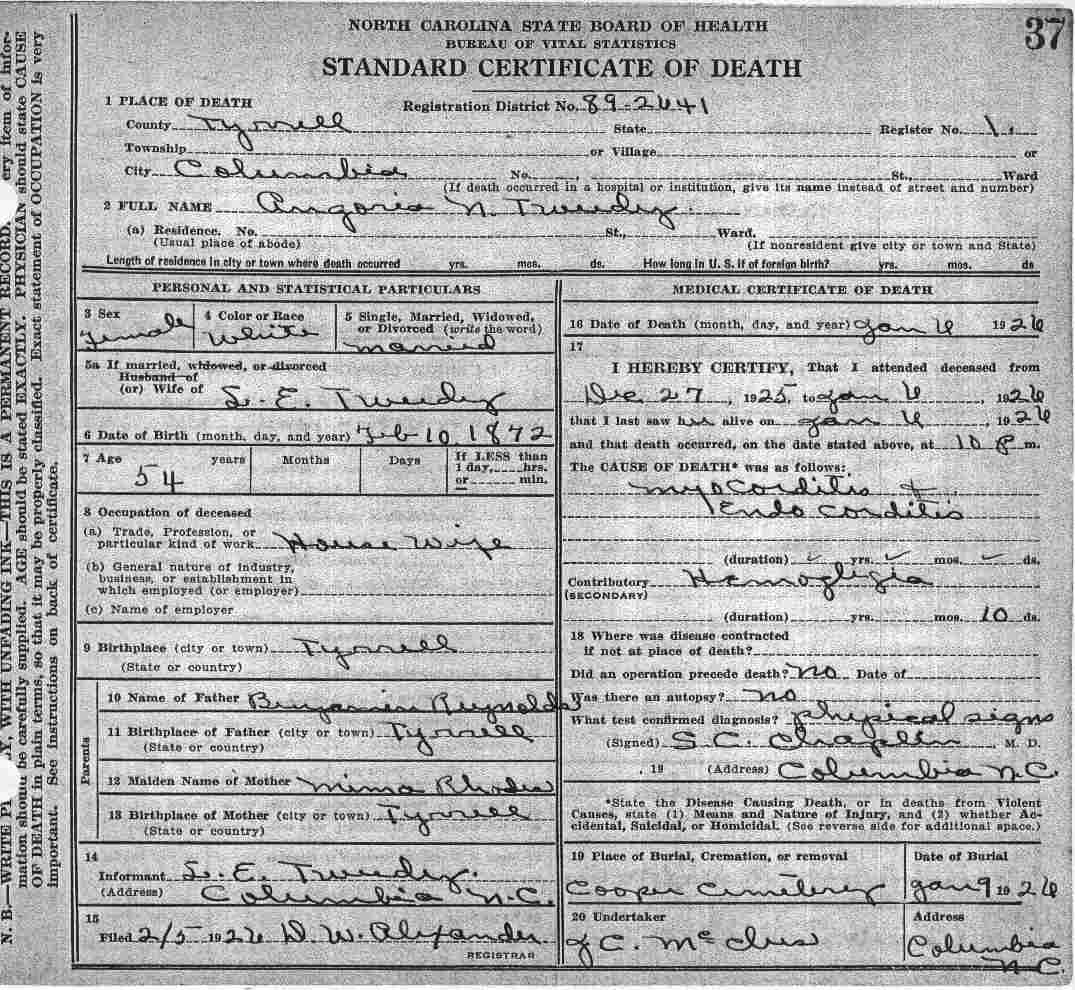 37
NORTH CAROLINA STATE BOARD OF HEALTH
BUREAU OF VITAL STATISTICS
STANDARD CERTIFICATE OF DEATH
1 PLACE OF DEATH Registration District No. 89-2641
County Tyrrell State Register No. 1
Township or Village or
City Columbia No. , St., Ward
(If death occurred in a hospital or institution, give its name instead of street and number)
2 FULL NAME Angoria N. Tweedy
(a) Residence. No. St., Ward.
(Usual place of abode) (If nonresident give city or town and State)
Length of residence in city or town where death occurred yrs. mos. ds. How long in U. S. if of foreign birth? yrs. mos. ds
PERSONAL AND STATISTICAL PARTICULARS
3 Sex
Female
4 Color or Race
White
5 Single, Married, Widowed,
or Divorced (write the word)
Married
5a If married, widowed, or divorced
Husband of
(or) Wife of S. E. Tweedy
6 Date of Birth (month, day, and year) Feb 10 1872
7 Age years Months Days If LESS than
1 day, hrs.
or min.
54
8 Occupation of deceased
(a) Trade, Profession, or
particular kind of work House Wife
(b) General nature of industry,
business, or establishment in
which employed (or employer)
(c) Name of employer
9 Birthplace (city or town) Tyrrell
(State or country)
Parents
10 Name of Father Benjamin Reynolds
11 Birthplace of Father (city or town) Tyrrell
(State or country)
12 Maiden Name of Mother Mima Rhodes
13 Birthplace of Mother (city or town) Tyrrell
(State or country)
14
Informant S. E. Tweedy.
(Address) Columbia N.C.
15
Filed 2/5 1926 D. W. Alexander.
REGISTRAR
MEDICAL CERTIFICATE OF DEATH
16 Date of Death (month, day, and year) Jan 6 1926
17
I HEREBY CERTIFY, That I attended deceased from
Dec 27, 1925, to Jan 6, 1926
that I last saw her alive on Jan 6, 1926
and that death occurred, on the date stated above, at 10 P m.
The CAUSE OF DEATH* was as follows:
Myocorditis &
Endo corditis
(duration) yrs. mos. ds.
Contributory Hemogligia
(SECONDARY)
(duration) yrs. mos. 10 ds.
18 Where was disease contracted
if not at place of death?
Did an operation precede death? No Date of
Was there an autopsy? No
What test confirmed diagnosis? Physical signs
(Signed) S. C. Chaplin, M. D.
, 19 (Address) Columbia N.C.
*State the Disease Causing Death, or in deaths from Violent
Causes, state (1) Means and Nature of Injury, and (2) whether Ac-
cidental, Suicidal, or Homicidal. (See reverse side for additional space.)
19 Place of Burial, Cremation, or removal
Cooper Cemetery
Date of Burial
Jan 9 1926
20 Undertaker
J C. Mc
Address
Columbia
N.C.
N. B.—WRITE PL Y, WITH UNFADING INK—THIS IS A PERMANENT RECORD. ery item of infor-
mation should be carefully supplied. AGE should be stated EXACTLY. PHYSICIAN should state CAUSE
OF DEATH in plain terms, so that it may be properly classified. Exact statement of OCCUPATION is very
important. See instructions on back of certificate.